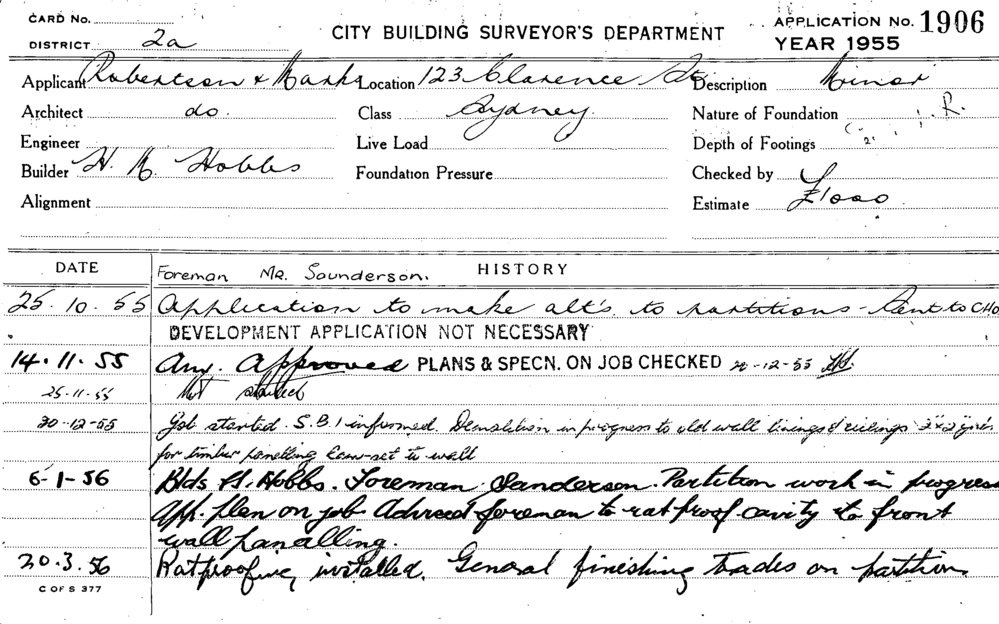 CARD No.
DISTRICT 2a
CITY BUILDING SURVEYOR'S DEPARTMENT
APPLICATION No. 1906
YEAR 1955
Applicant Robertson & Marks Location 123 Clarence St Description Minor
Architect do. Class Sydney. Nature of Foundation R.
Engineer Live Load Depth of Footings
Builder H. Hobbs Foundation Pressure Checked by
Alignment Estimate £1000
DATE Foreman Mr. Saunderson. HISTORY
25.10.55 Application to make alt's. to partitions - Sent to CHO
DEVELOPMENT APPLICATION NOT NECESSARY
14.11.55 Approved PLANS & SPECN. ON JOB CHECKED -12-55
25.11.55 Not started
30-12-55 Job started. S.B.I informed. Demolition in progress to old wall linings & ceilings 2"x2"
for timber panelling to wall
6-1-56 Blds H. Hobbs. Foreman Sanderson. Partition work in progress
App. plan on job Advised foreman to ratproof cavity to front
wall panelling.
20.3.56 Ratproofing installed. General finishing trades on partition.
C OF S 377